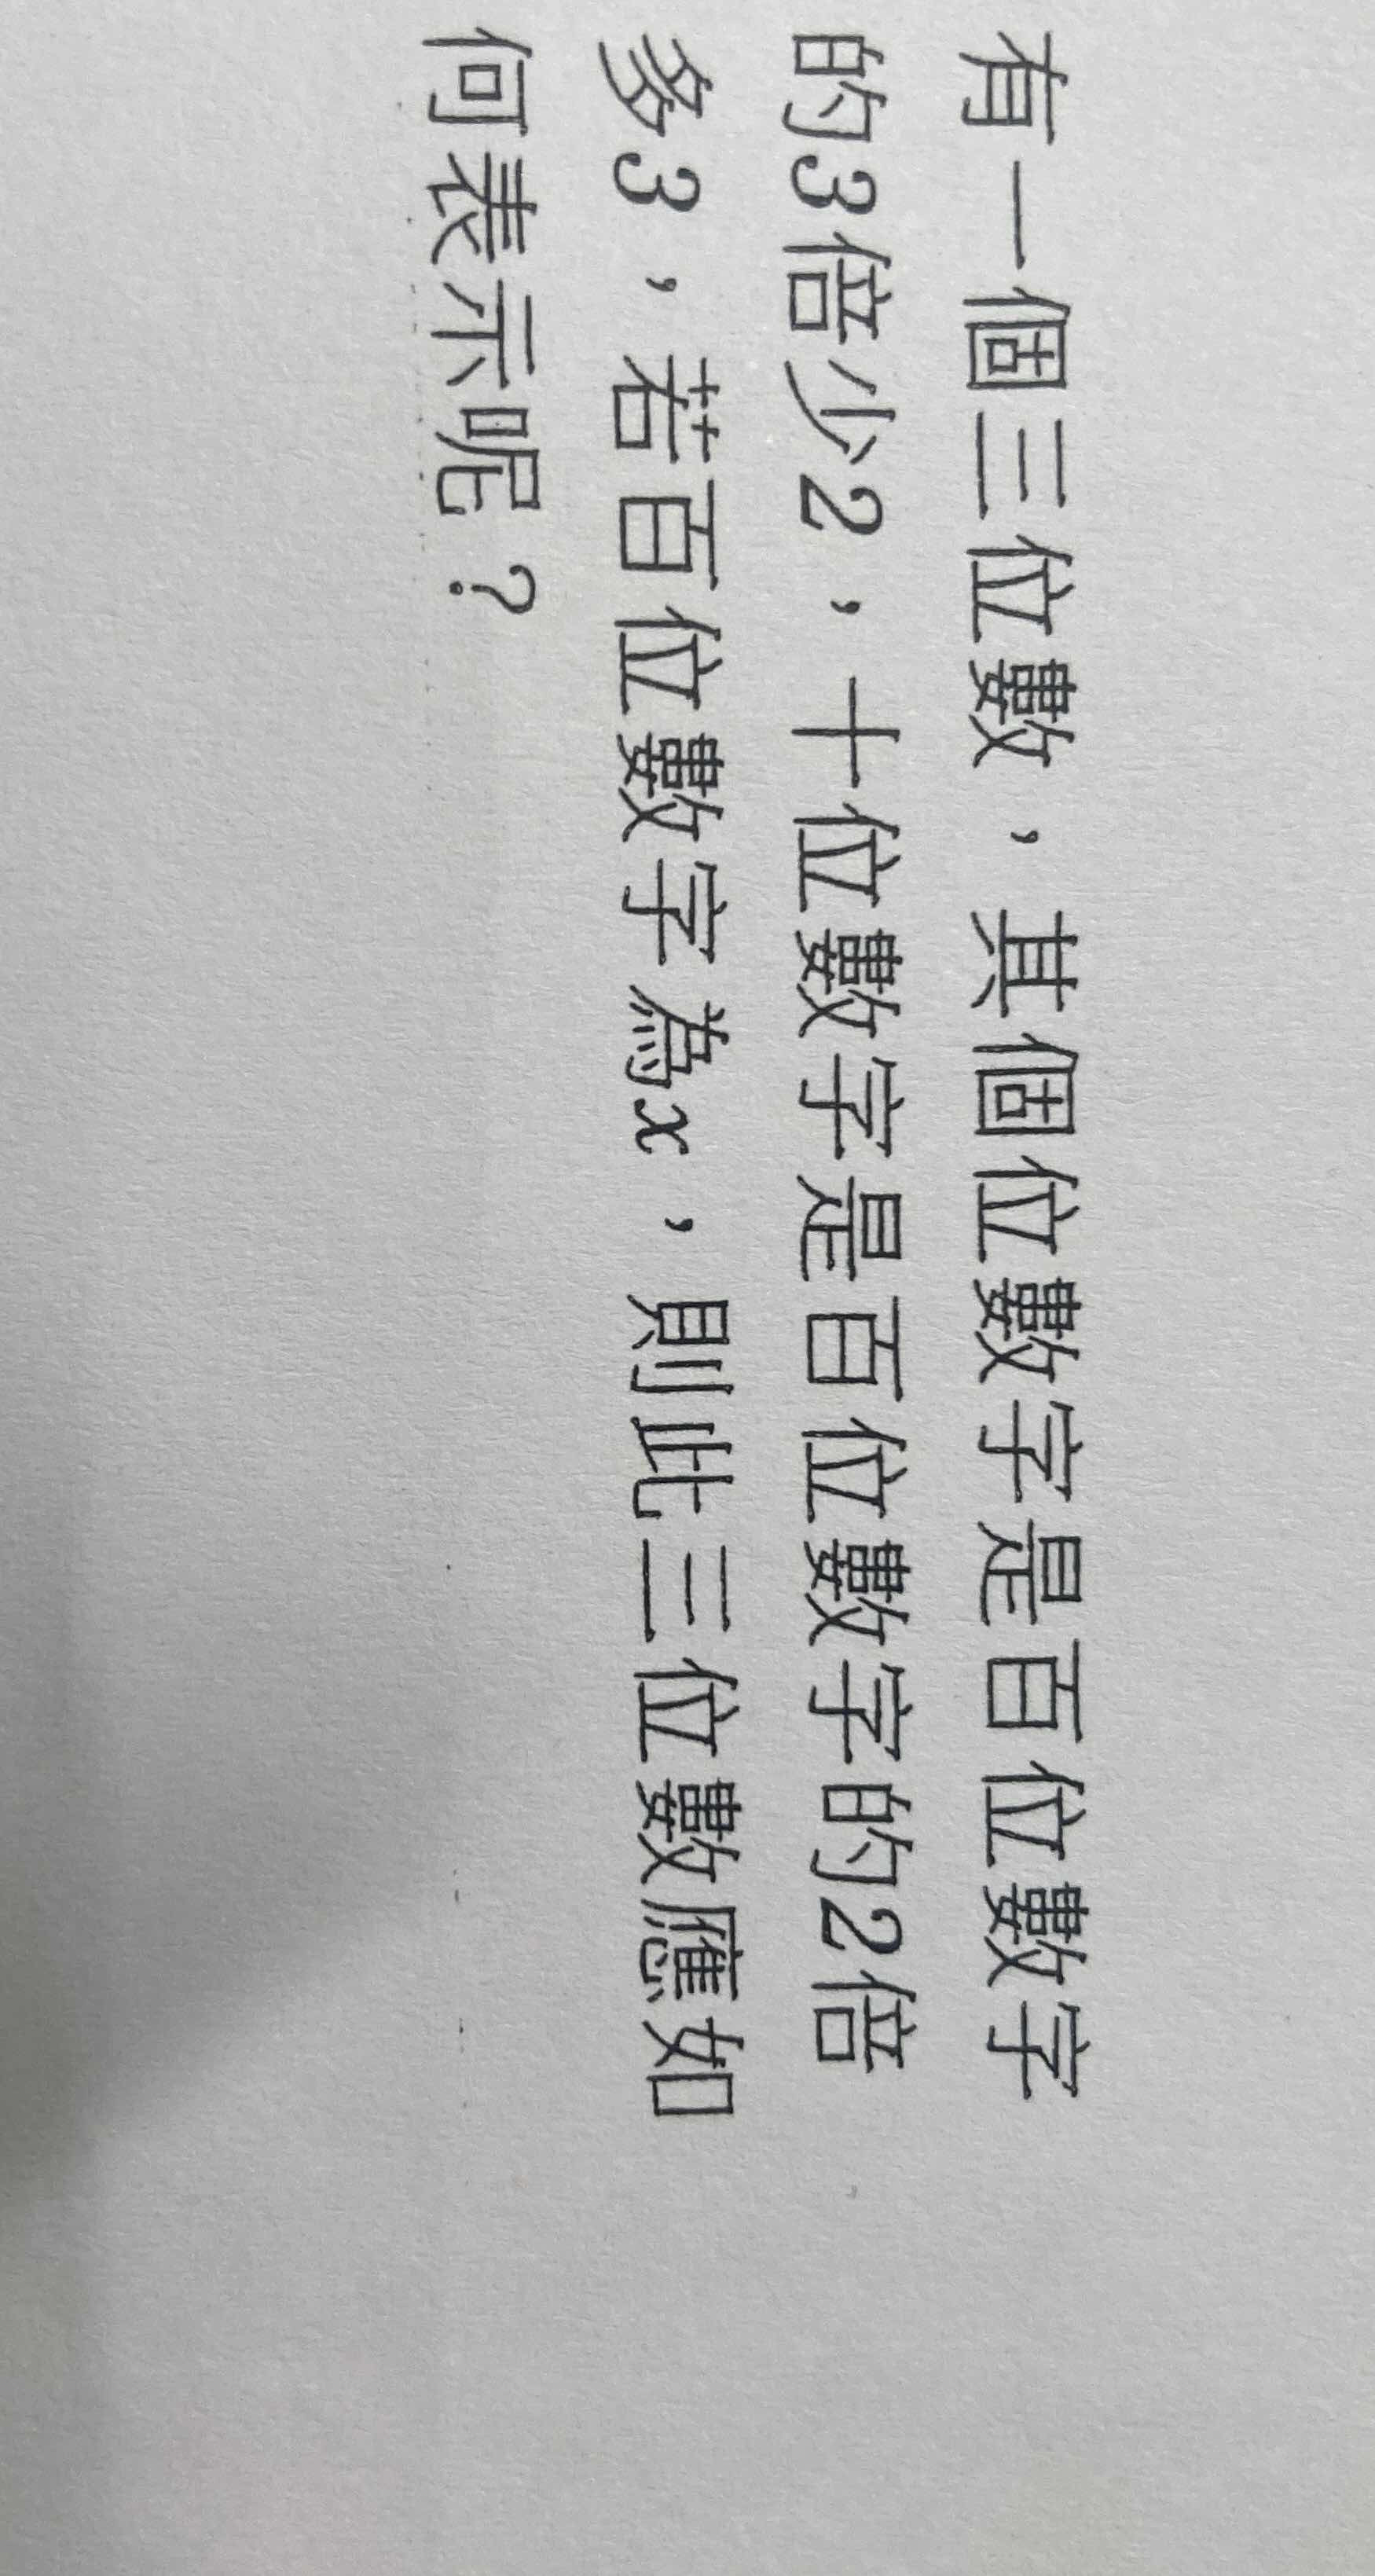 有一個三位數，其個位數字是百位數字
的3倍少2，十位數字是百位數字的2倍
多3，若百位數字為x，則此三位數應如
何表示呢？